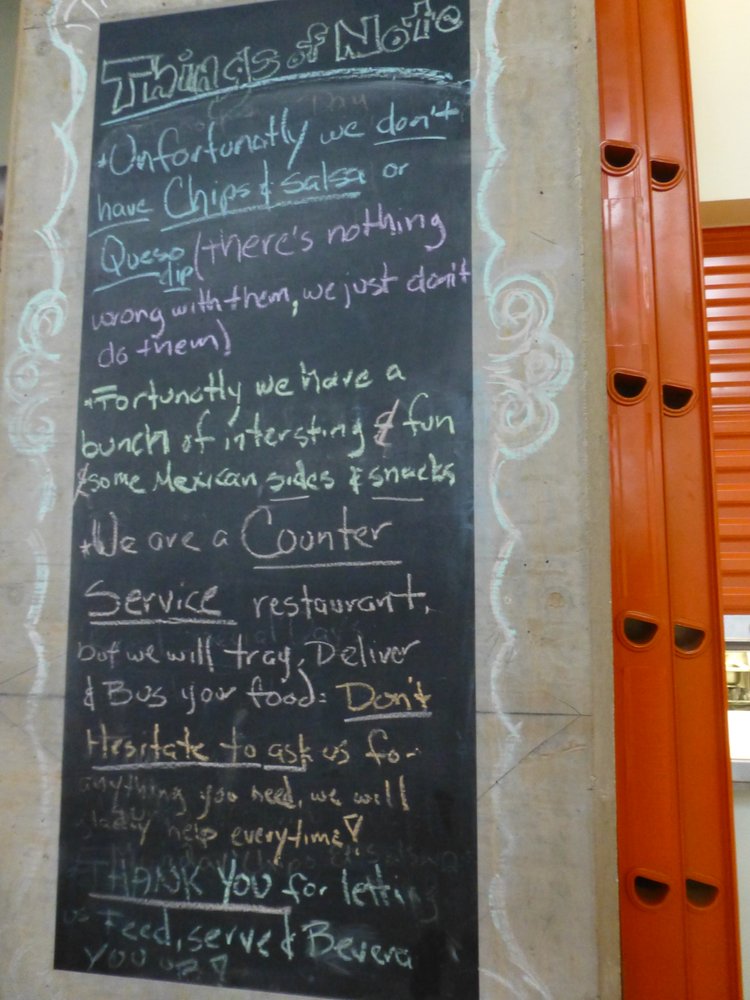 Things of Note
*Unfortunatly we don't
have Chips & Salsa or
Queso dip (there's nothing
wrong with them, we just don't
do them)
*Fortunatly we have a
bunch of intersting & fun
& some Mexican sides & snacks
*We are a Counter
Service restaurant,
but we will tray, Deliver
& Bus your food: Don't
Hesitate to ask us for
anything you need, we will
gladly help everytime!
*THANK YOU for letting
us Feed, serve & Bevera
you